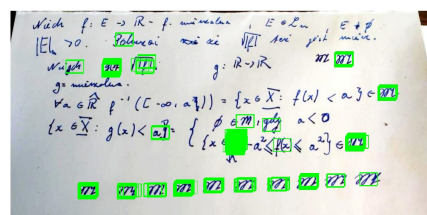 Niech f: E → ℝ - f. mierzalna, E ∈ 𝓛n, E ≠ ∅
|E| > 0. Pokazać że √|f| też jest mierz.
Niech √|f|. g: ℝ → ℝ 𝔪 𝔪
g = mierzalna.
∀a ∈ ℝ f⁻¹([-∞, a)) = {x ∈ X: f(x) < a} ∈ 𝔪
{x ∈ X: g(x) < a} = { ∅ ∈ 𝔪, gdy a < 0
{x ∈ -a² ≤ f(x) ≤ a²} ∈ 𝔪
𝔪 𝔪 𝔪 𝔪 𝔪 𝔪 𝔪 𝔪 𝔪 𝔪